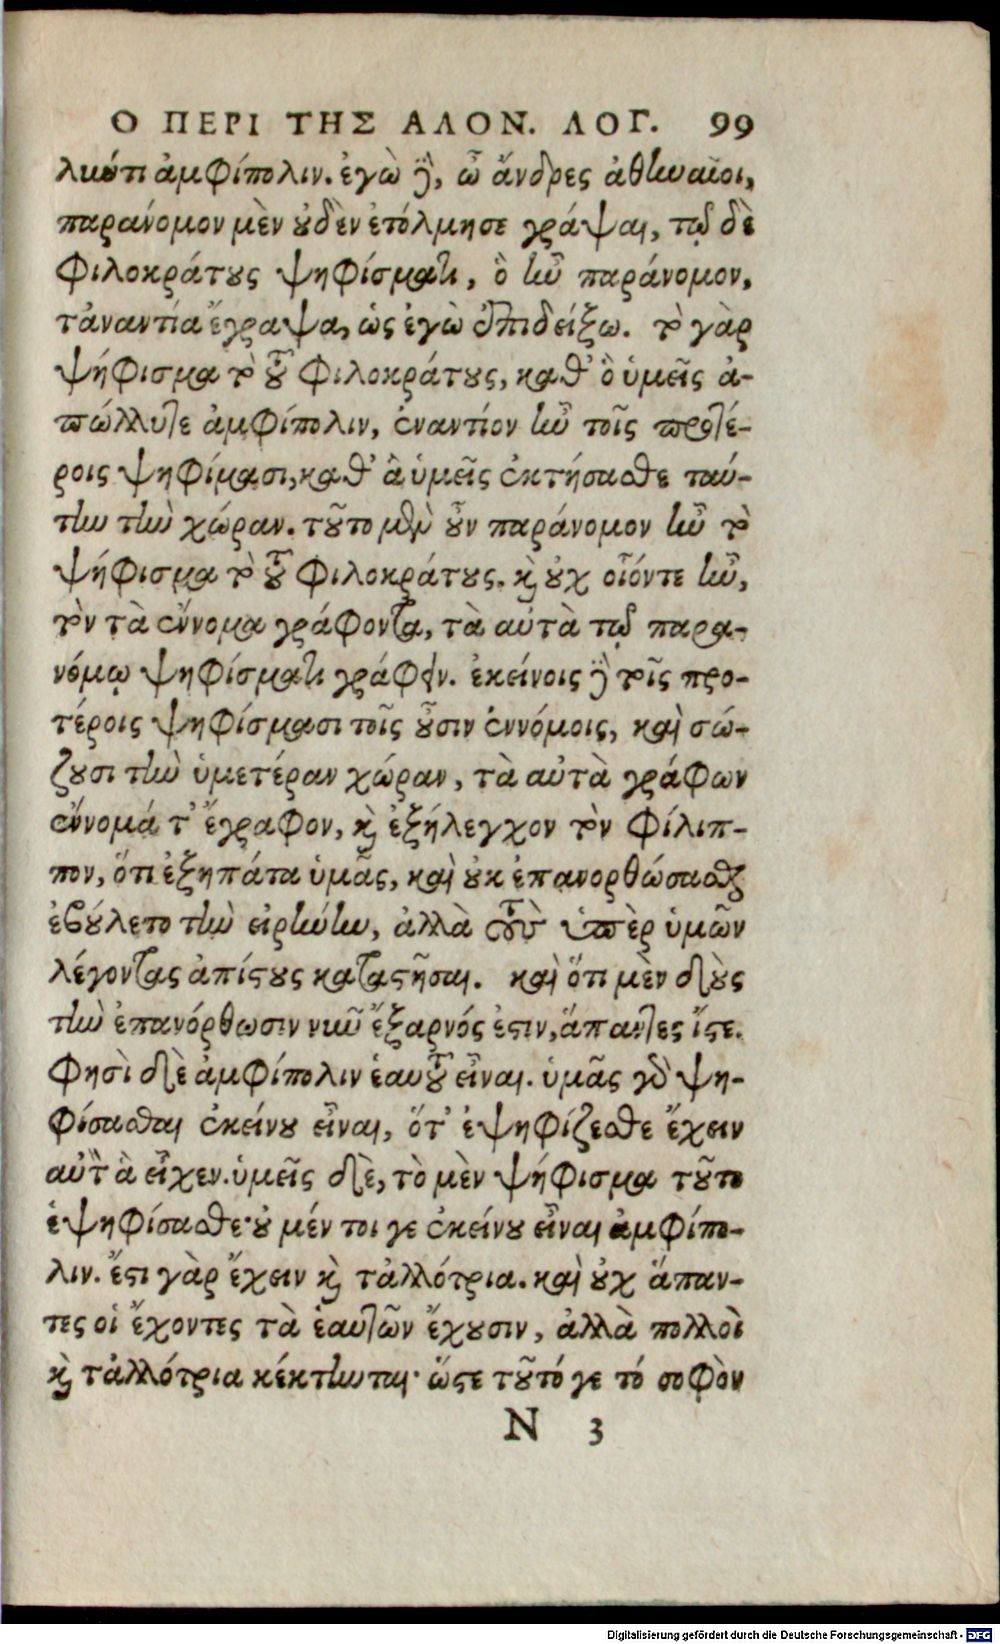 Ο ΠΕΡΙ ΤΗΣ ΑΛΟΝ. ΛΟΓ. 99
λκότι ἀμφίπολιν. ἐγὼ δὲ, ὦ ἄνδρες ἀθηναῖοι,
παράνομον μὲν οὐδὲν ἐτόλμησε γράψαι, τῷ δὲ
Φιλοκράτους ψηφίσματι, ὃ ἦν παράνομον,
τἀναντία ἔγραψα, ὡς ἐγὼ ἐπιδείξω. τὸ γὰρ
ψήφισμα τὸ τοῦ Φιλοκράτους, καθ' ὃ ὑμεῖς ἀ-
πώλλυτε ἀμφίπολιν, ἐναντίον ἦν τοῖς προτέ-
ροις ψηφίμασι, καθ' ἃ ὑμεῖς ἐκτήσασθε ταύ-
την τὴν χώραν. τοῦτο μὲν οὖν παράνομον ἦν τὸ
ψήφισμα τὸ τοῦ Φιλοκράτους. καὶ οὐχ οἷόντε ἦν,
τὸν τὰ ἔννομα γράφοντα, τὰ αὐτὰ τῷ παρα-
νόμῳ ψηφίσματι γράφειν. ἐκείνοις δὲ τοῖς προ-
τέροις ψηφίσμασι τοῖς οὖσιν ἐννόμοις, καὶ σώ-
ζουσι τὴν ὑμετέραν χώραν, τὰ αὐτὰ γράφων
ἔννομά τ' ἔγραφον, καὶ ἐξήλεγχον τὸν Φίλιπ-
πον, ὅτι ἐξηπάτα ὑμᾶς, καὶ οὐκ ἐπανορθώσασθαι
ἐβούλετο τὴν εἰρήνην, ἀλλὰ τοὺς ὑπὲρ ὑμῶν
λέγοντας ἀπίστους καταστῆσαι. καὶ ὅτι μὲν δοὺς
τὴν ἐπανόρθωσιν νῦν ἔξαρνός ἐστιν, ἅπαντες ἴστε.
Φησὶ δὲ ἀμφίπολιν ἑαυτοῦ εἶναι. ὑμᾶς γὰρ ψη-
φίσασθαι ἐκείνου εἶναι, ὅτ' ἐψηφίζεσθε ἔχειν
αὐτὸν ἃ εἶχεν. ὑμεῖς δὲ, τὸ μὲν ψήφισμα τοῦτο
ἐψηφίσασθε· οὐ μέν τοι γε ἐκείνου εἶναι ἀμφίπο-
λιν. ἔστι γὰρ ἔχειν καὶ τἀλλότρια. καὶ οὐχ ἅπαν-
τες οἱ ἔχοντες τὰ ἑαυτῶν ἔχουσιν, ἀλλὰ πολλοὶ
καὶ τἀλλότρια κέκτηνται· ὥστε τοῦτό γε τό σοφὸν
N 3
Digitalisierung gefördert durch die Deutsche Forschungsgemeinschaft - DFG